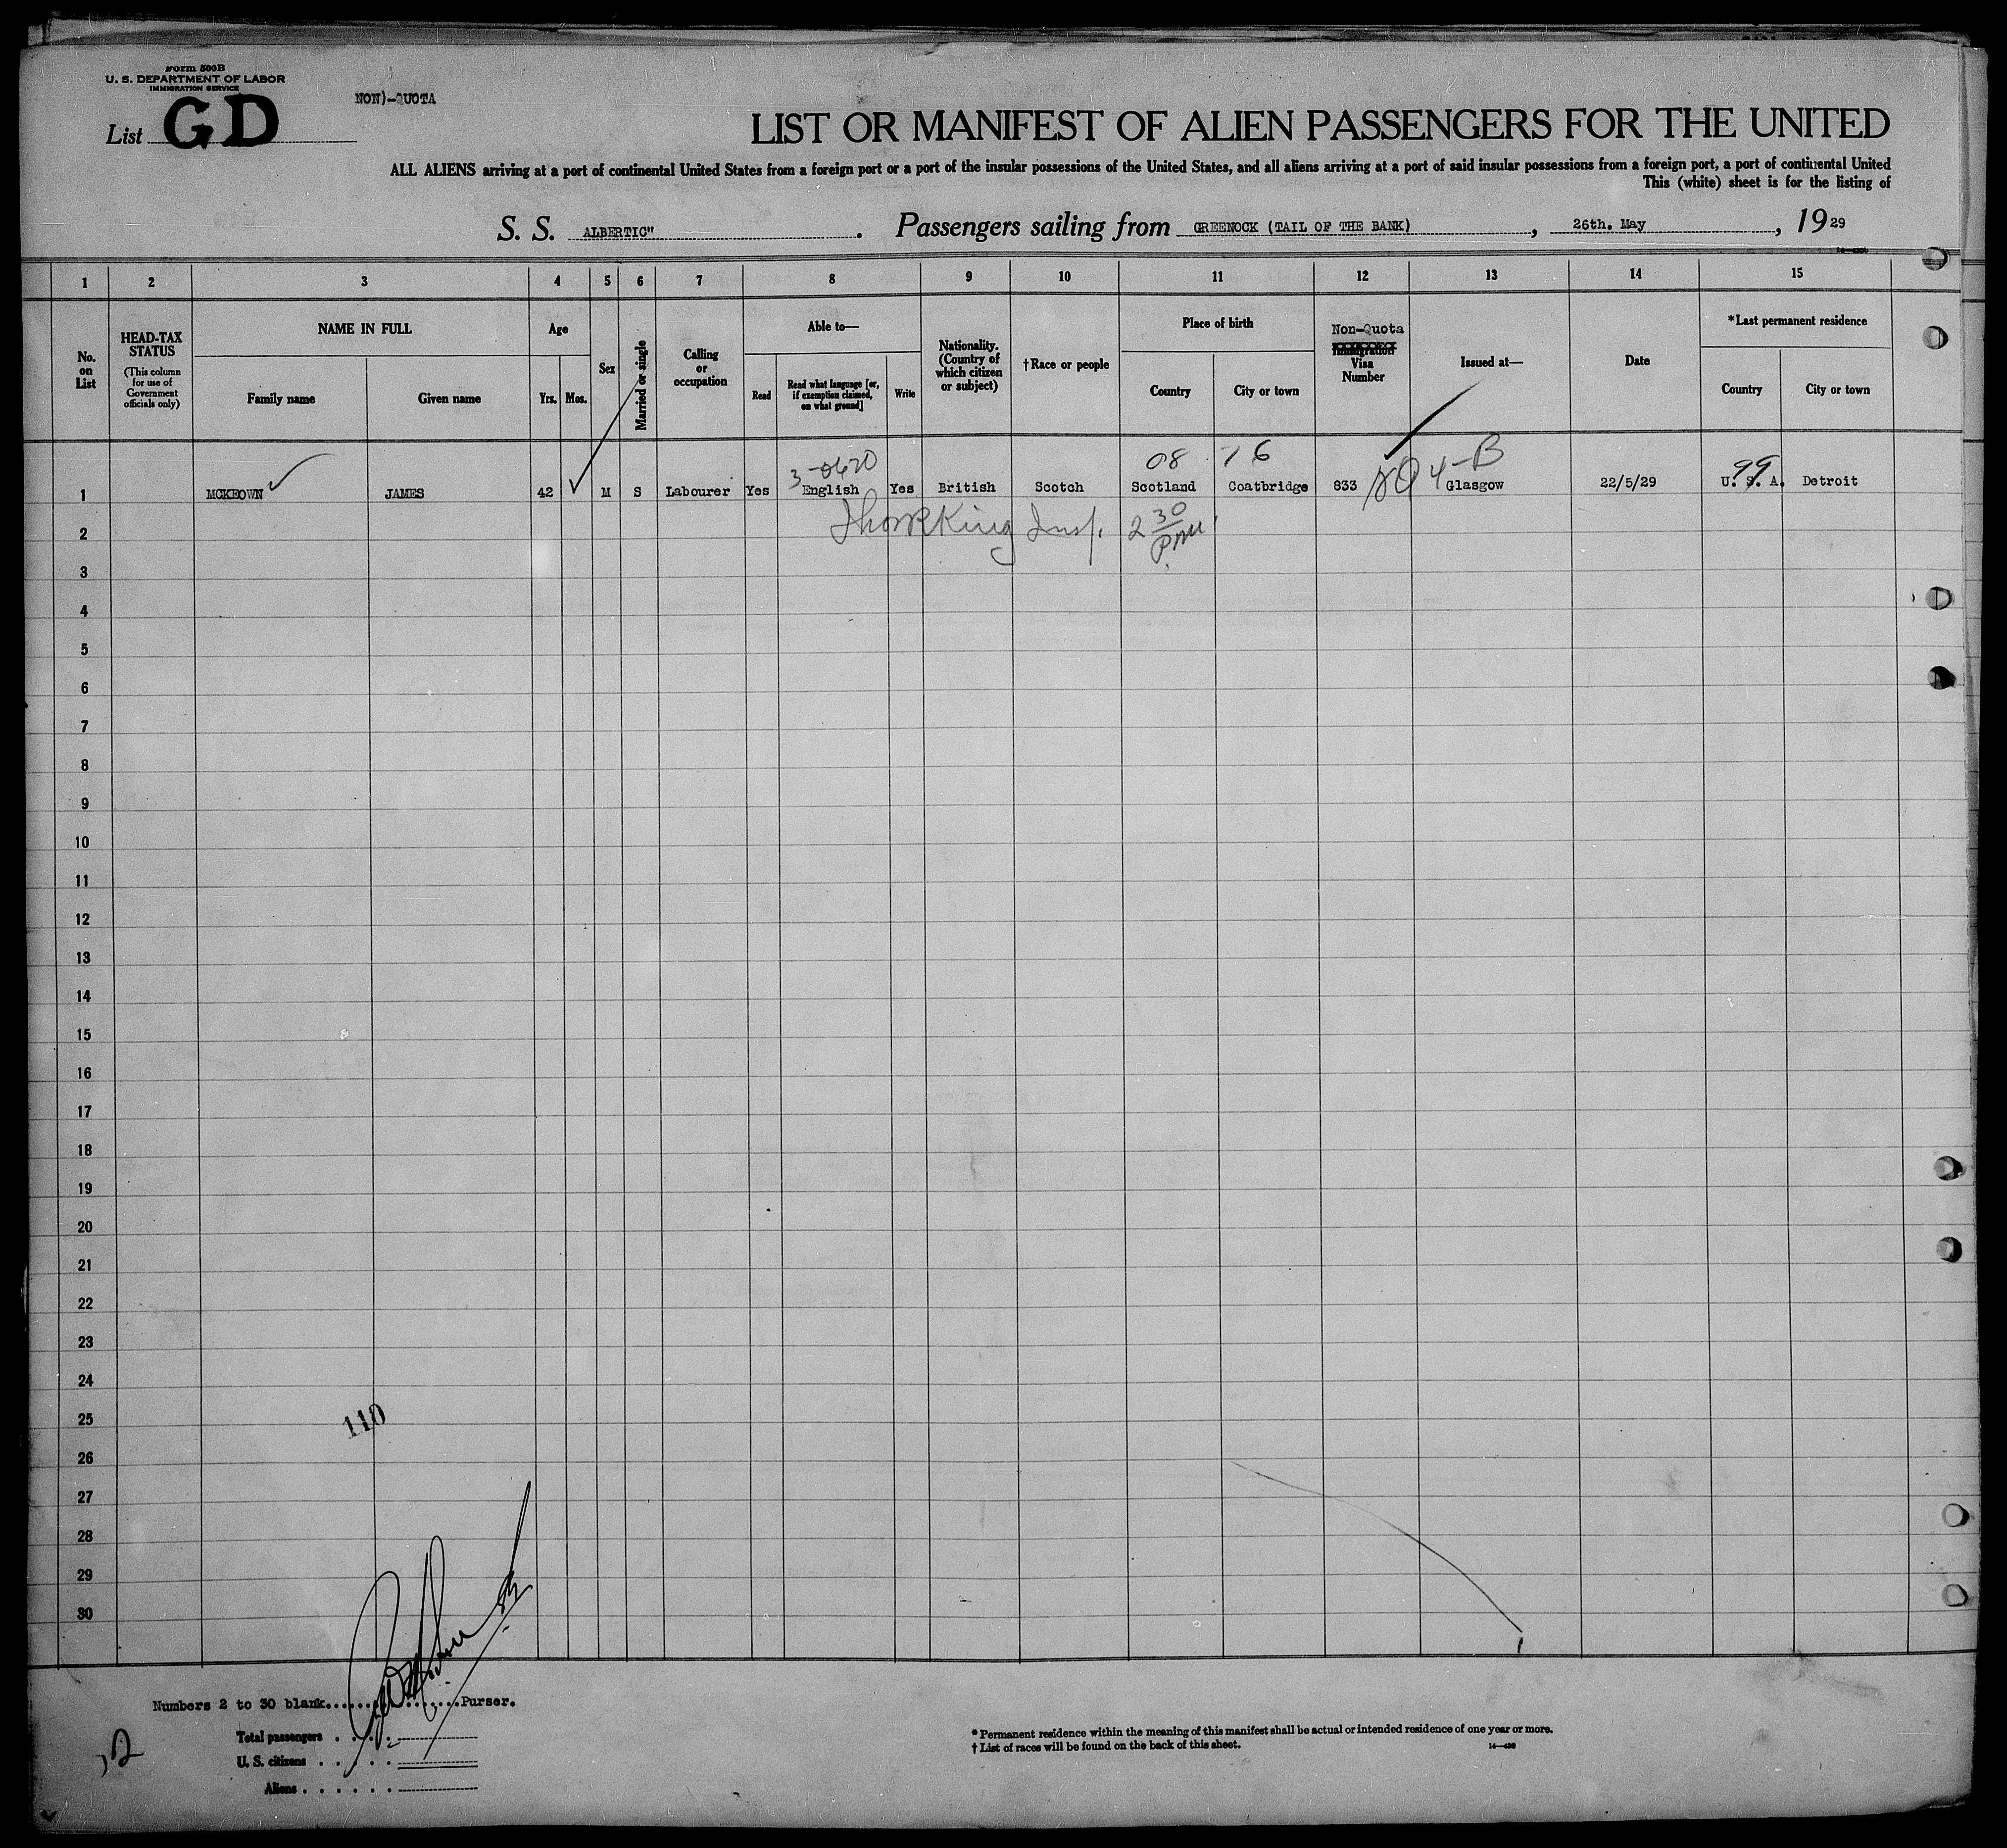 Form 500B
U. S. DEPARTMENT OF LABOR
IMMIGRATION SERVICE
NON)-QUOTA
List GD
LIST OR MANIFEST OF ALIEN PASSENGERS FOR THE UNITED
ALL ALIENS arriving at a port of continental United States from a foreign port or a port of the insular possessions of the United States, and all aliens arriving at a port of said insular possessions from a foreign port, a port of continental United
This (white) sheet is for the listing of
S. S. ALBERTIC". Passengers sailing from GREENOCK (TAIL OF THE BANK), 26th. May, 1929
1 2 3 4 5 6 7 8 9 10 11 12 13 14 15
No. on List
HEAD-TAX STATUS
(This column for use of Government officials only)
NAME IN FULL
Family name
Given name
Age
Yrs.
Mos.
Sex
Married or single
Calling or occupation
Able to—
Read
Read what language [or, if exemption claimed, on what ground]
Write
Nationality. (Country of which citizen or subject)
†Race or people
Place of birth
Country
City or town
Non-Quota
Immigration
Visa Number
Issued at—
Date
*Last permanent residence
Country
City or town
3-0620 08 76 4-B 99
1 MCKEOWN JAMES 42 M S Labourer Yes English Yes British Scotch Scotland Coatbridge 833 Glasgow 22/5/29 U. S. A. Detroit
2 King Insp. 2 30 PM
3
4
5
6
7
8
9
10
11
12
13
14
15
16
17
18
19
20
21
22
23
24
25 110
26
27
28
29
30
Numbers 2 to 30 blank..................Purser.
Total passengers
U. S. citizens
Aliens
12
* Permanent residence within the meaning of this manifest shall be actual or intended residence of one year or more.
† List of races will be found on the back of this sheet.